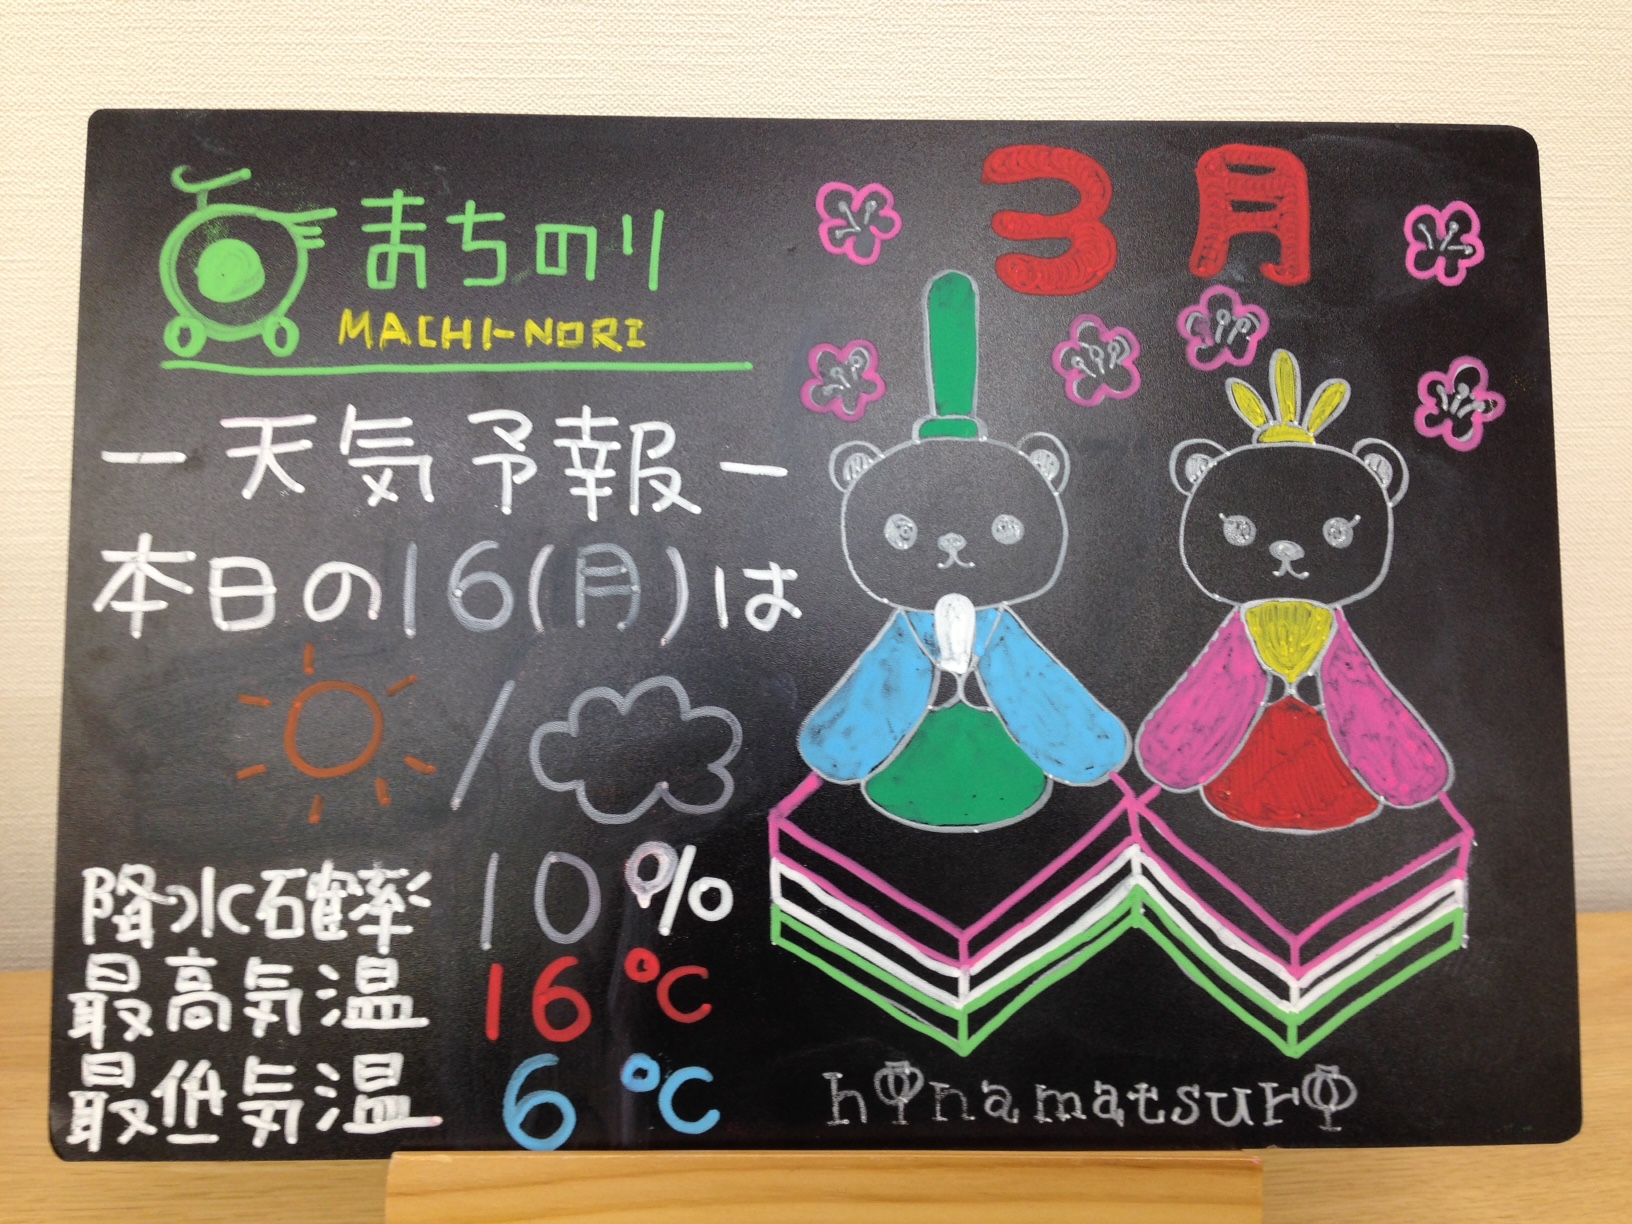 まちのり
MACHI-NORI
ー天気予報ー
本日の16(月)は
/
降水確率 10%
最高気温 16℃
最低気温 6℃
3月
hinamatsuri